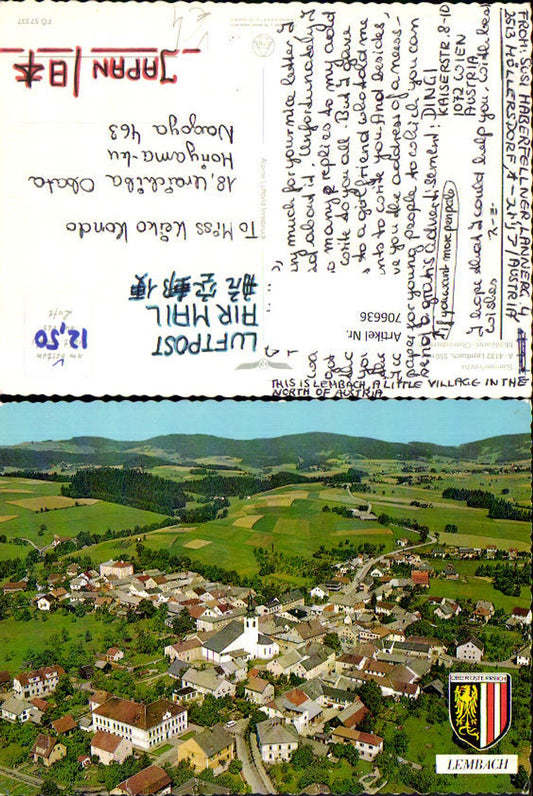 FROM: SUSI HABERFELLNER, LANNERG. 4
2513 MÖLLERSDORF / AUSTRIA
ny much for your nice letter. I
d about it. Unfortunately I
many replies to my add
write to you all. But I gave
to a girlfriend who told me
nts to write you. And besides,
ve you the address of a news-
paper for young people to which you can
send a gratis advertisement: DING 1
KAISERSTR. 8-10
1072 WIEN
AUSTRIA
if you want more penpals
I hope that I could help you, with best
wishes
THIS IS LEMBACH, A LITTLE VILLAGE IN THE
NORTH OF AUSTRIA
Artikel Nr.
706636
A-4132 Lembach, 550
Alpine Luftbild Innsbruck
PÖ 57337
LUFTPOST
AIR MAIL
航空郵便
To Miss Keiko Kondo
18, Uraichiba Obata
Moriyama-ku
Nagoya 463
JAPAN / 日本
12,50
OBERÖSTERREICH
LEMBACH